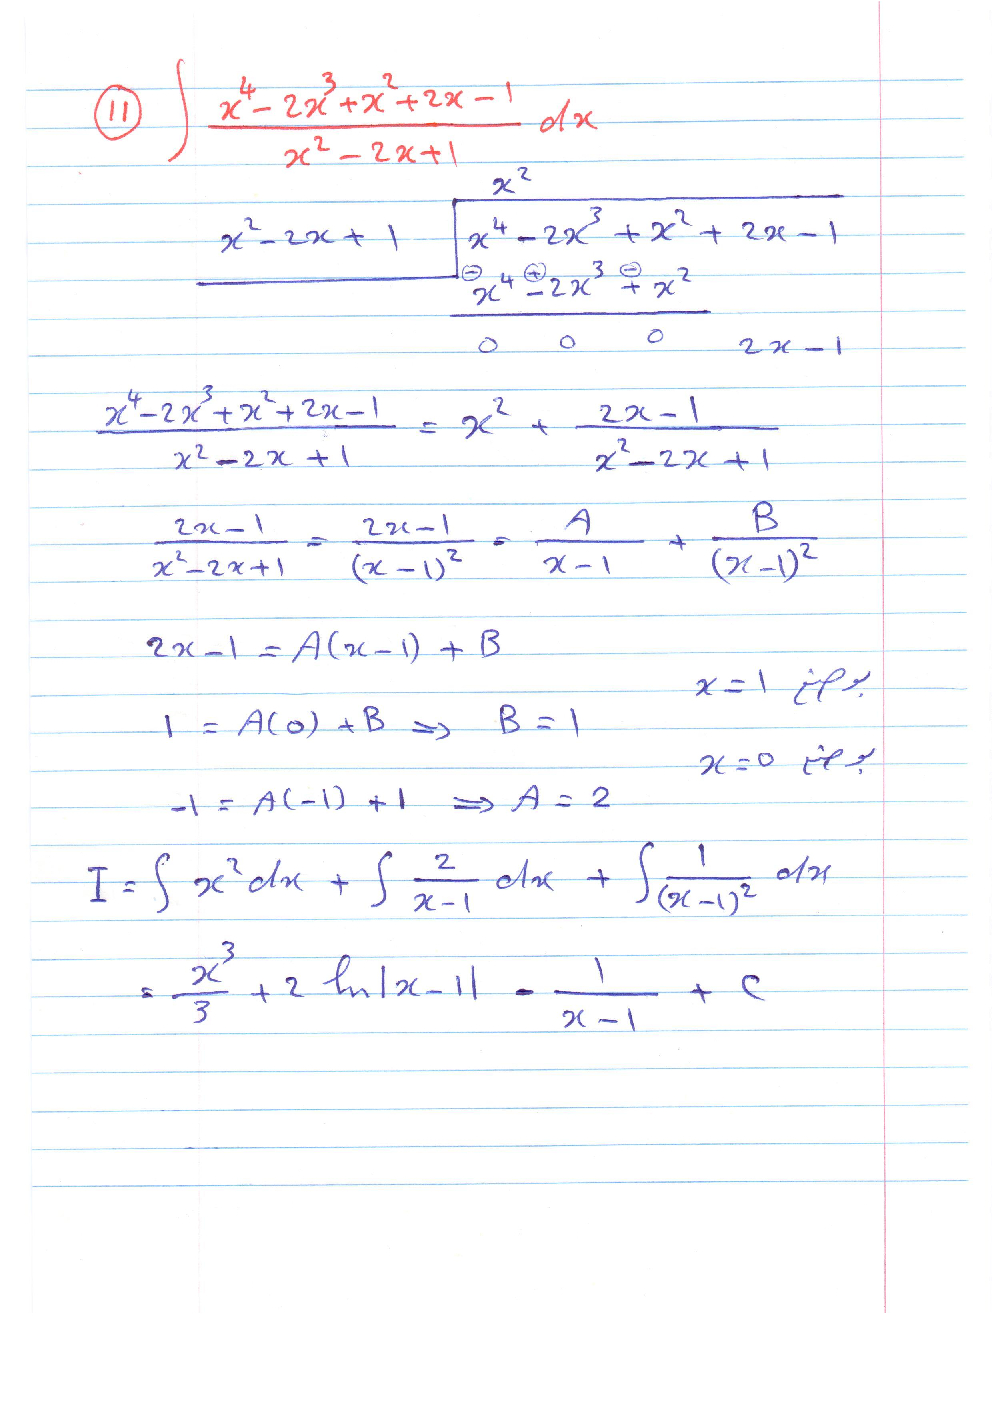 11 ∫ (x⁴ - 2x³ + x² + 2x - 1)/(x² - 2x + 1) dx
x²
x² - 2x + 1 | x⁴ - 2x³ + x² + 2x - 1
⊖ ⊕ ⊖
x⁴ - 2x³ + x²
0 0 0 2x - 1
(x⁴ - 2x³ + x² + 2x - 1)/(x² - 2x + 1) = x² + (2x - 1)/(x² - 2x + 1)
(2x - 1)/(x² - 2x + 1) = (2x - 1)/(x - 1)² = A/(x - 1) + B/(x - 1)²
2x - 1 = A(x - 1) + B
x = 1 بوضع
1 = A(0) + B ⇒ B = 1
x = 0 بوضع
-1 = A(-1) + 1 ⇒ A = 2
I = ∫ x² dx + ∫ 2/(x - 1) dx + ∫ 1/(x - 1)² dx
= x³/3 + 2 ln|x - 1| - 1/(x - 1) + C